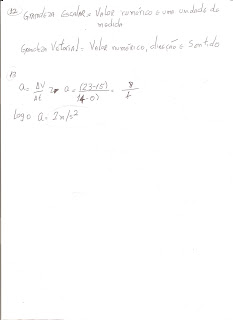 12 Grandeza Escalar = Valor numérico e uma unidade de
medida
Grandeza Vetorial = Valor numérico, direção e Sentido
13
a = ΔV/Δt => a = (23-15)/(4-0) = 8/4
Logo a = 2m/s²